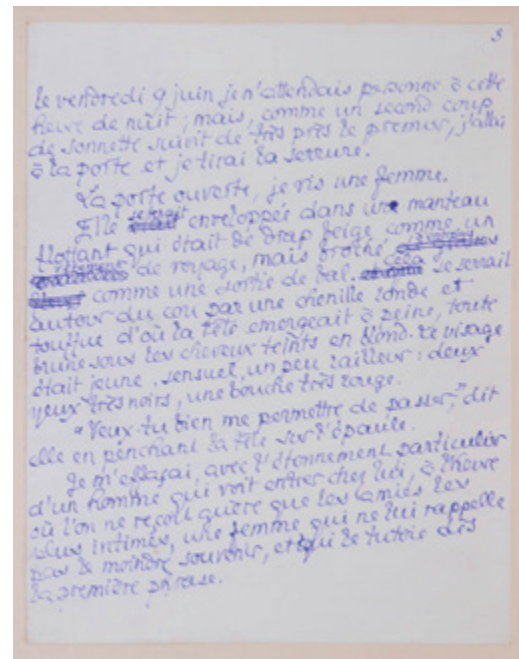 3
le vendredi 9 juin je n'attendais personne à cette
heure de nuit ; mais, comme un second coup
de sonnette suivit de très près le premier, j'allai
à la porte et je tirai la serrure.
La porte ouverte, je vis une femme.
Elle enveloppée dans un manteau
flottant qui était de drap beige comme un
vêtement de voyage, mais broché
comme une sortie de bal. cela se serrait
autour du cou par une chenille ronde et
touffue d'où la tête émergeait à peine, toute
brune sous les cheveux teints en blond. Le visage
était jeune, sensuel, un peu railleur : deux
yeux très noirs, une bouche très rouge.
"Veux-tu bien me permettre de passer," dit
elle en penchant la tête sur l'épaule.
Je m'effaçai, avec l'étonnement particulier
d'un homme qui voit entrer chez lui, à l'heure
où l'on ne reçoit guère que les amies les
plus intimes, une femme qui ne lui rappelle
pas le moindre souvenir, et qui le tutoie dès
la première phrase.